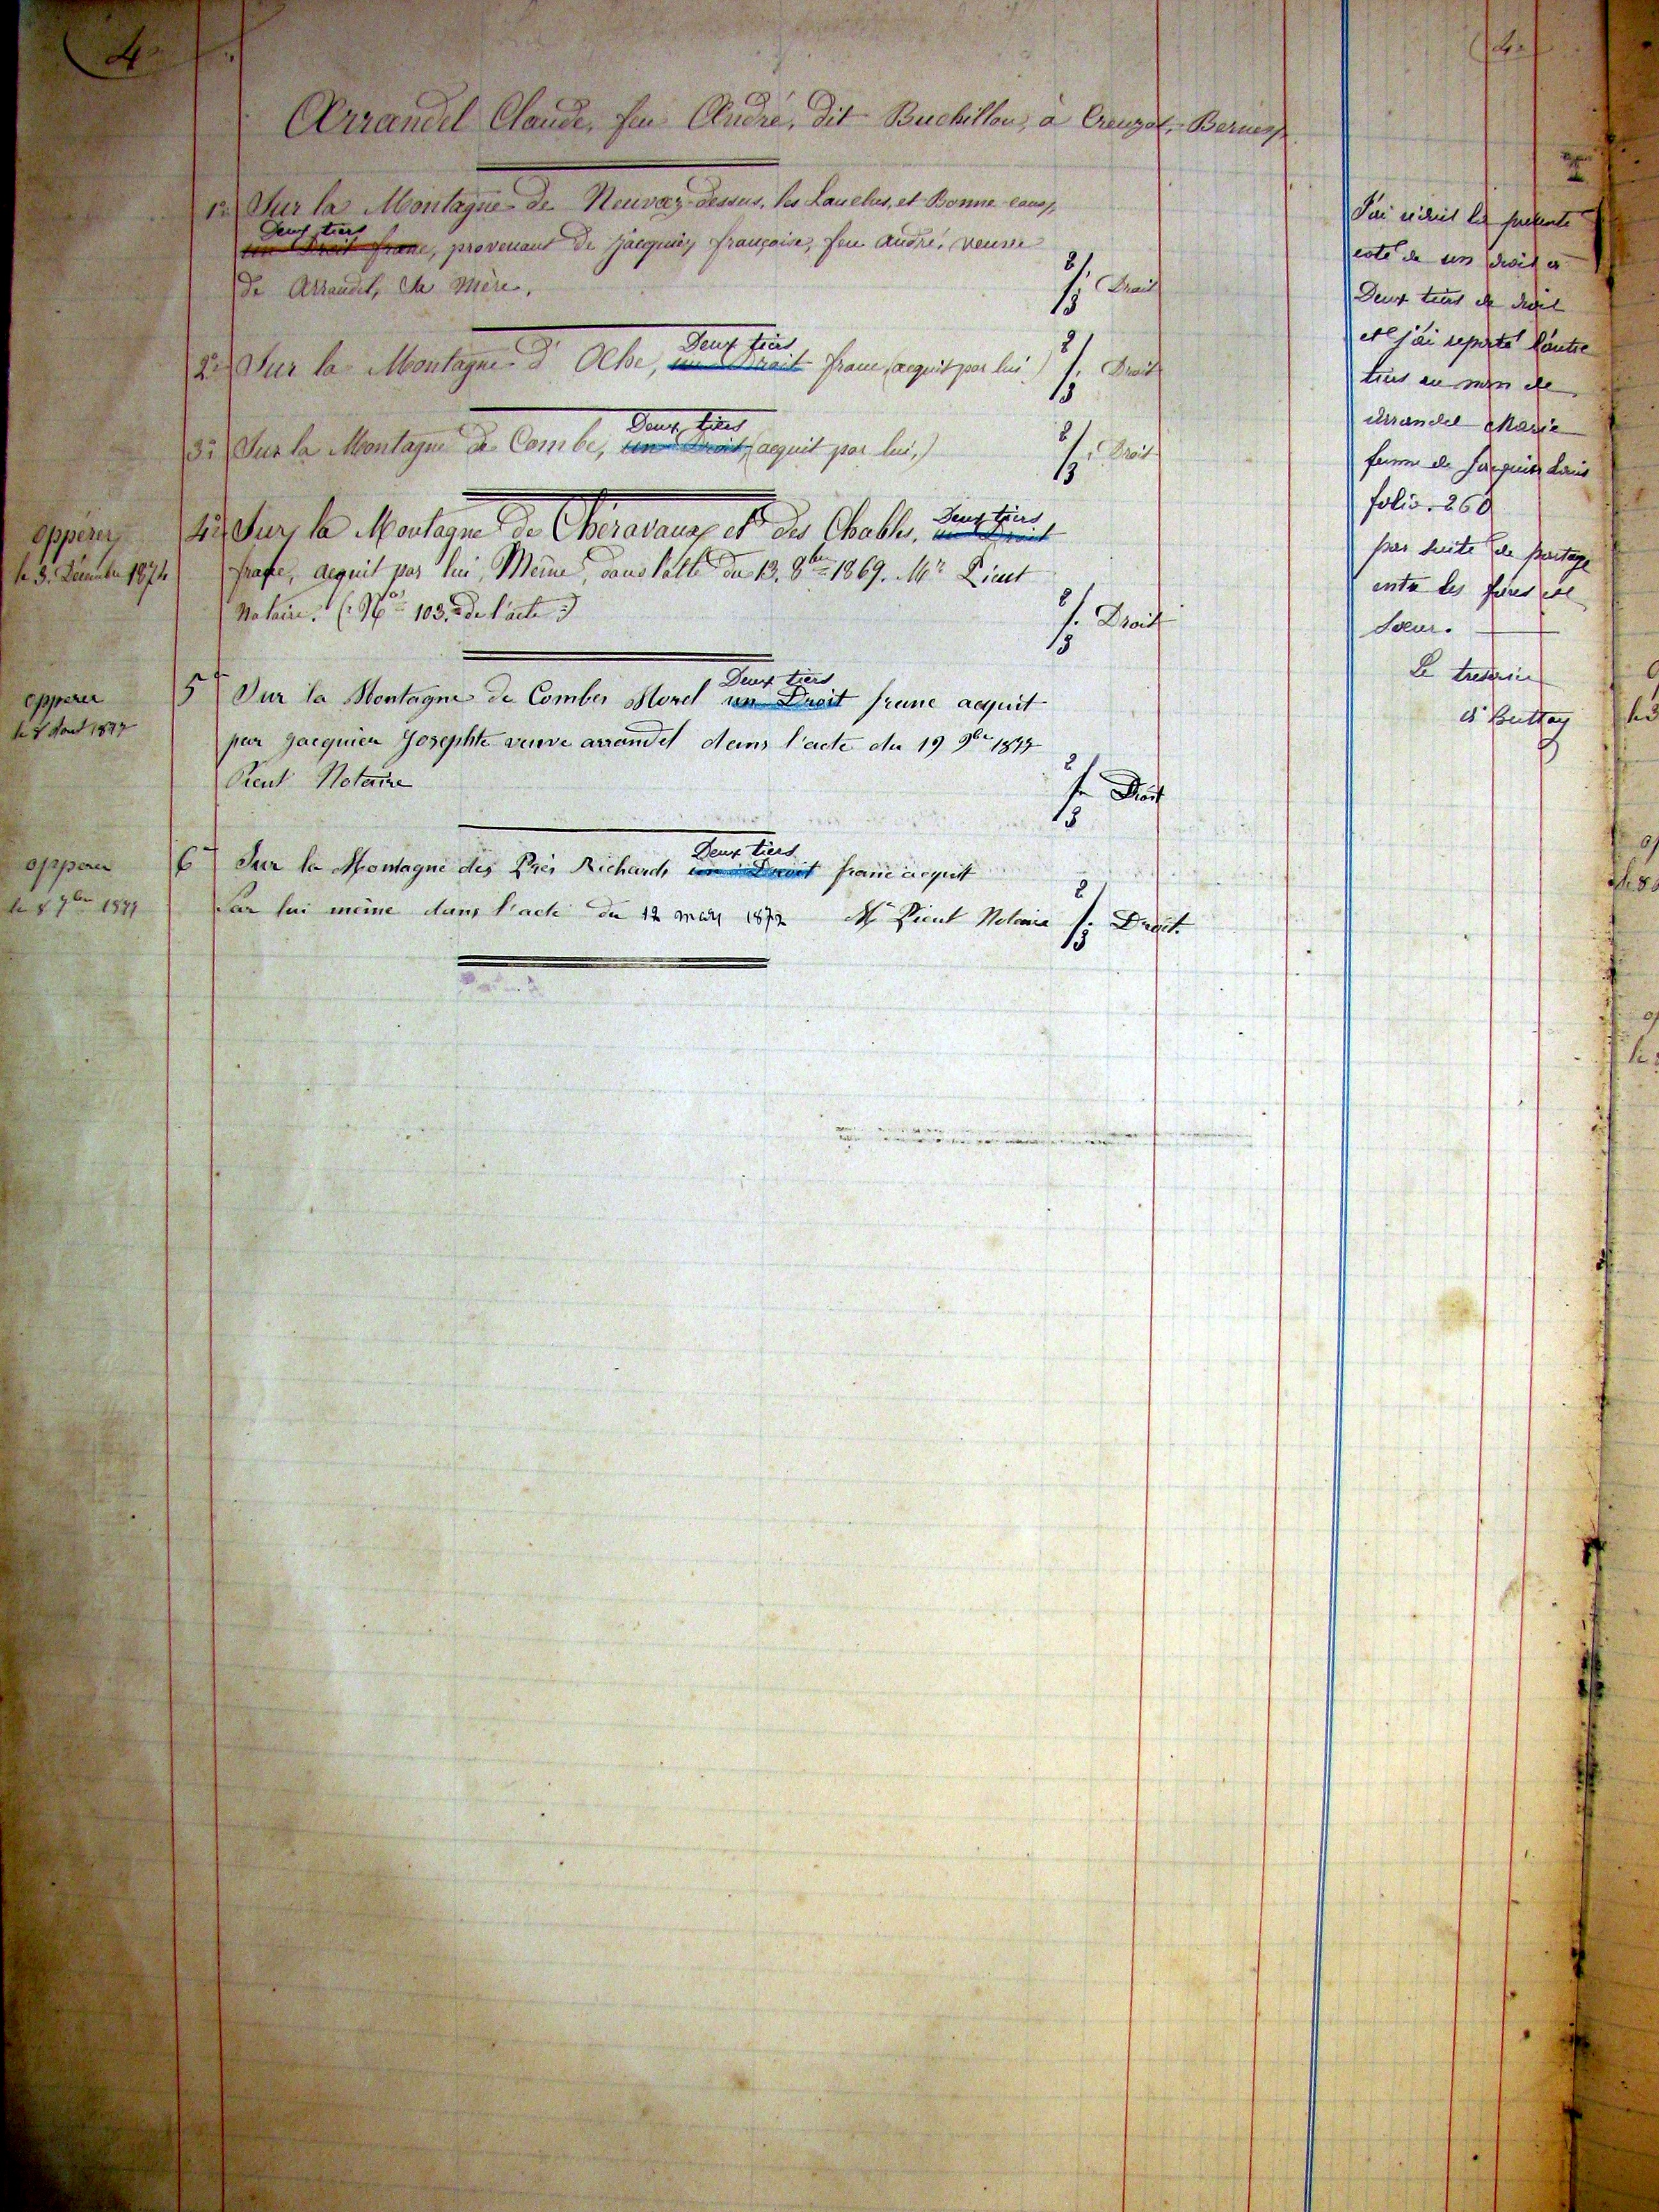 4
Arrandel Claude, feu André, dit Buchillon, à Creuzot, Bernex
1° Sur la Montagne de Neuvaz-dessus, les Lanches, et Bonne-eaux,
Deux tiers
un Droit franc, provenant de Jacquier françoise, feu André, veuve
de Arrandel, sa Mère, 2/3 Droit
Deux tiers
2° Sur la Montagne d'Oche, un Droit franc, (acquit par lui) 2/3 Droit
Deux tiers
3° Sur la Montagne de Combe, un Droit, (acquit par lui,) 2/3 Droit
Deux tiers
opperer 4° Sur la Montagne de Cheravaux et des Chables, un Droit
le 3. Décembre 1874 franc, acquit par lui, Même, dans l'acte du 13. 8bre 1869. Mre Pieut
Notaire. (: No 103. de l'acte :) 2/3 Droit
Deux tiers
opperer 5 Sur la Montagne de Combes Morel un Droit franc acquit
le 8 Aout 1877 par jacquier Josephte veuve arrandel dans l'acte du 19 9bre 1877
Pieut Notaire 2/3 Droit
Deux tiers
opperer 6 Sur la Montagne des Près Richard, un Droit franc acquit
le 8 7bre 1877 Par lui même dans l'acte du 12 mars 1872 Me Pieut Notaire 2/3 Droit.
J'ai réduit la presente
cote de un droit a
Deux tiers de droit
et j'ai reporté l'autre
tiers au nom de
Arrandel Marie
femme de Jacquier Louis
folio. 260
par suite de partage
entre les frères et
Soeur.
Le tresorier
Buttay